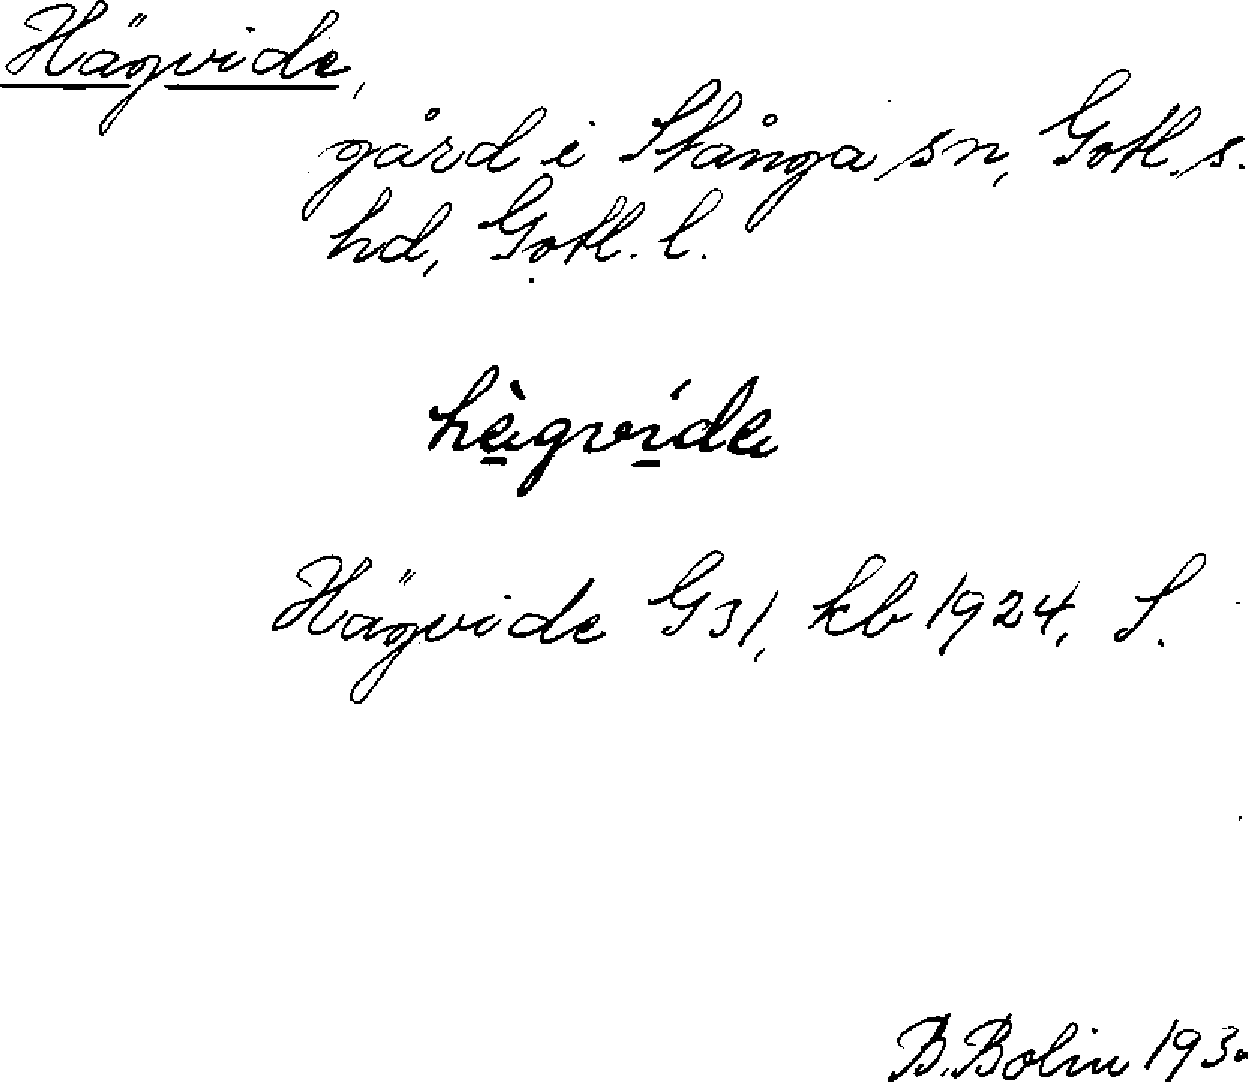 Hägvide,
gård i Stånga sn, Gotl. s.
hd, Gotl. l.
hègvida
Hägvide G31, kb 1924, S.
B. Bolin 193